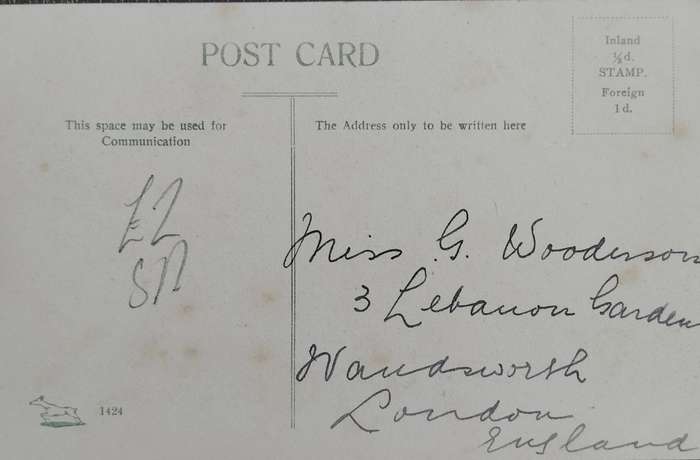 POST CARD
Inland
½d.
STAMP.
Foreign
1d.
This space may be used for
Communication
The Address only to be written here
Miss G. Wooderson
3 Lebanon Garden
Wandsworth
London
England
1424